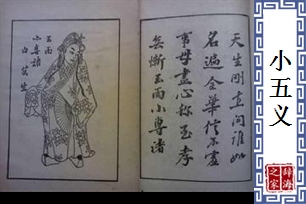 小五义
辞海
之家
天生剛直問誰如
名遍金華信不虛
事母盡心稱至孝
無慚玉面小專諸
玉面
小專諸
白芸生